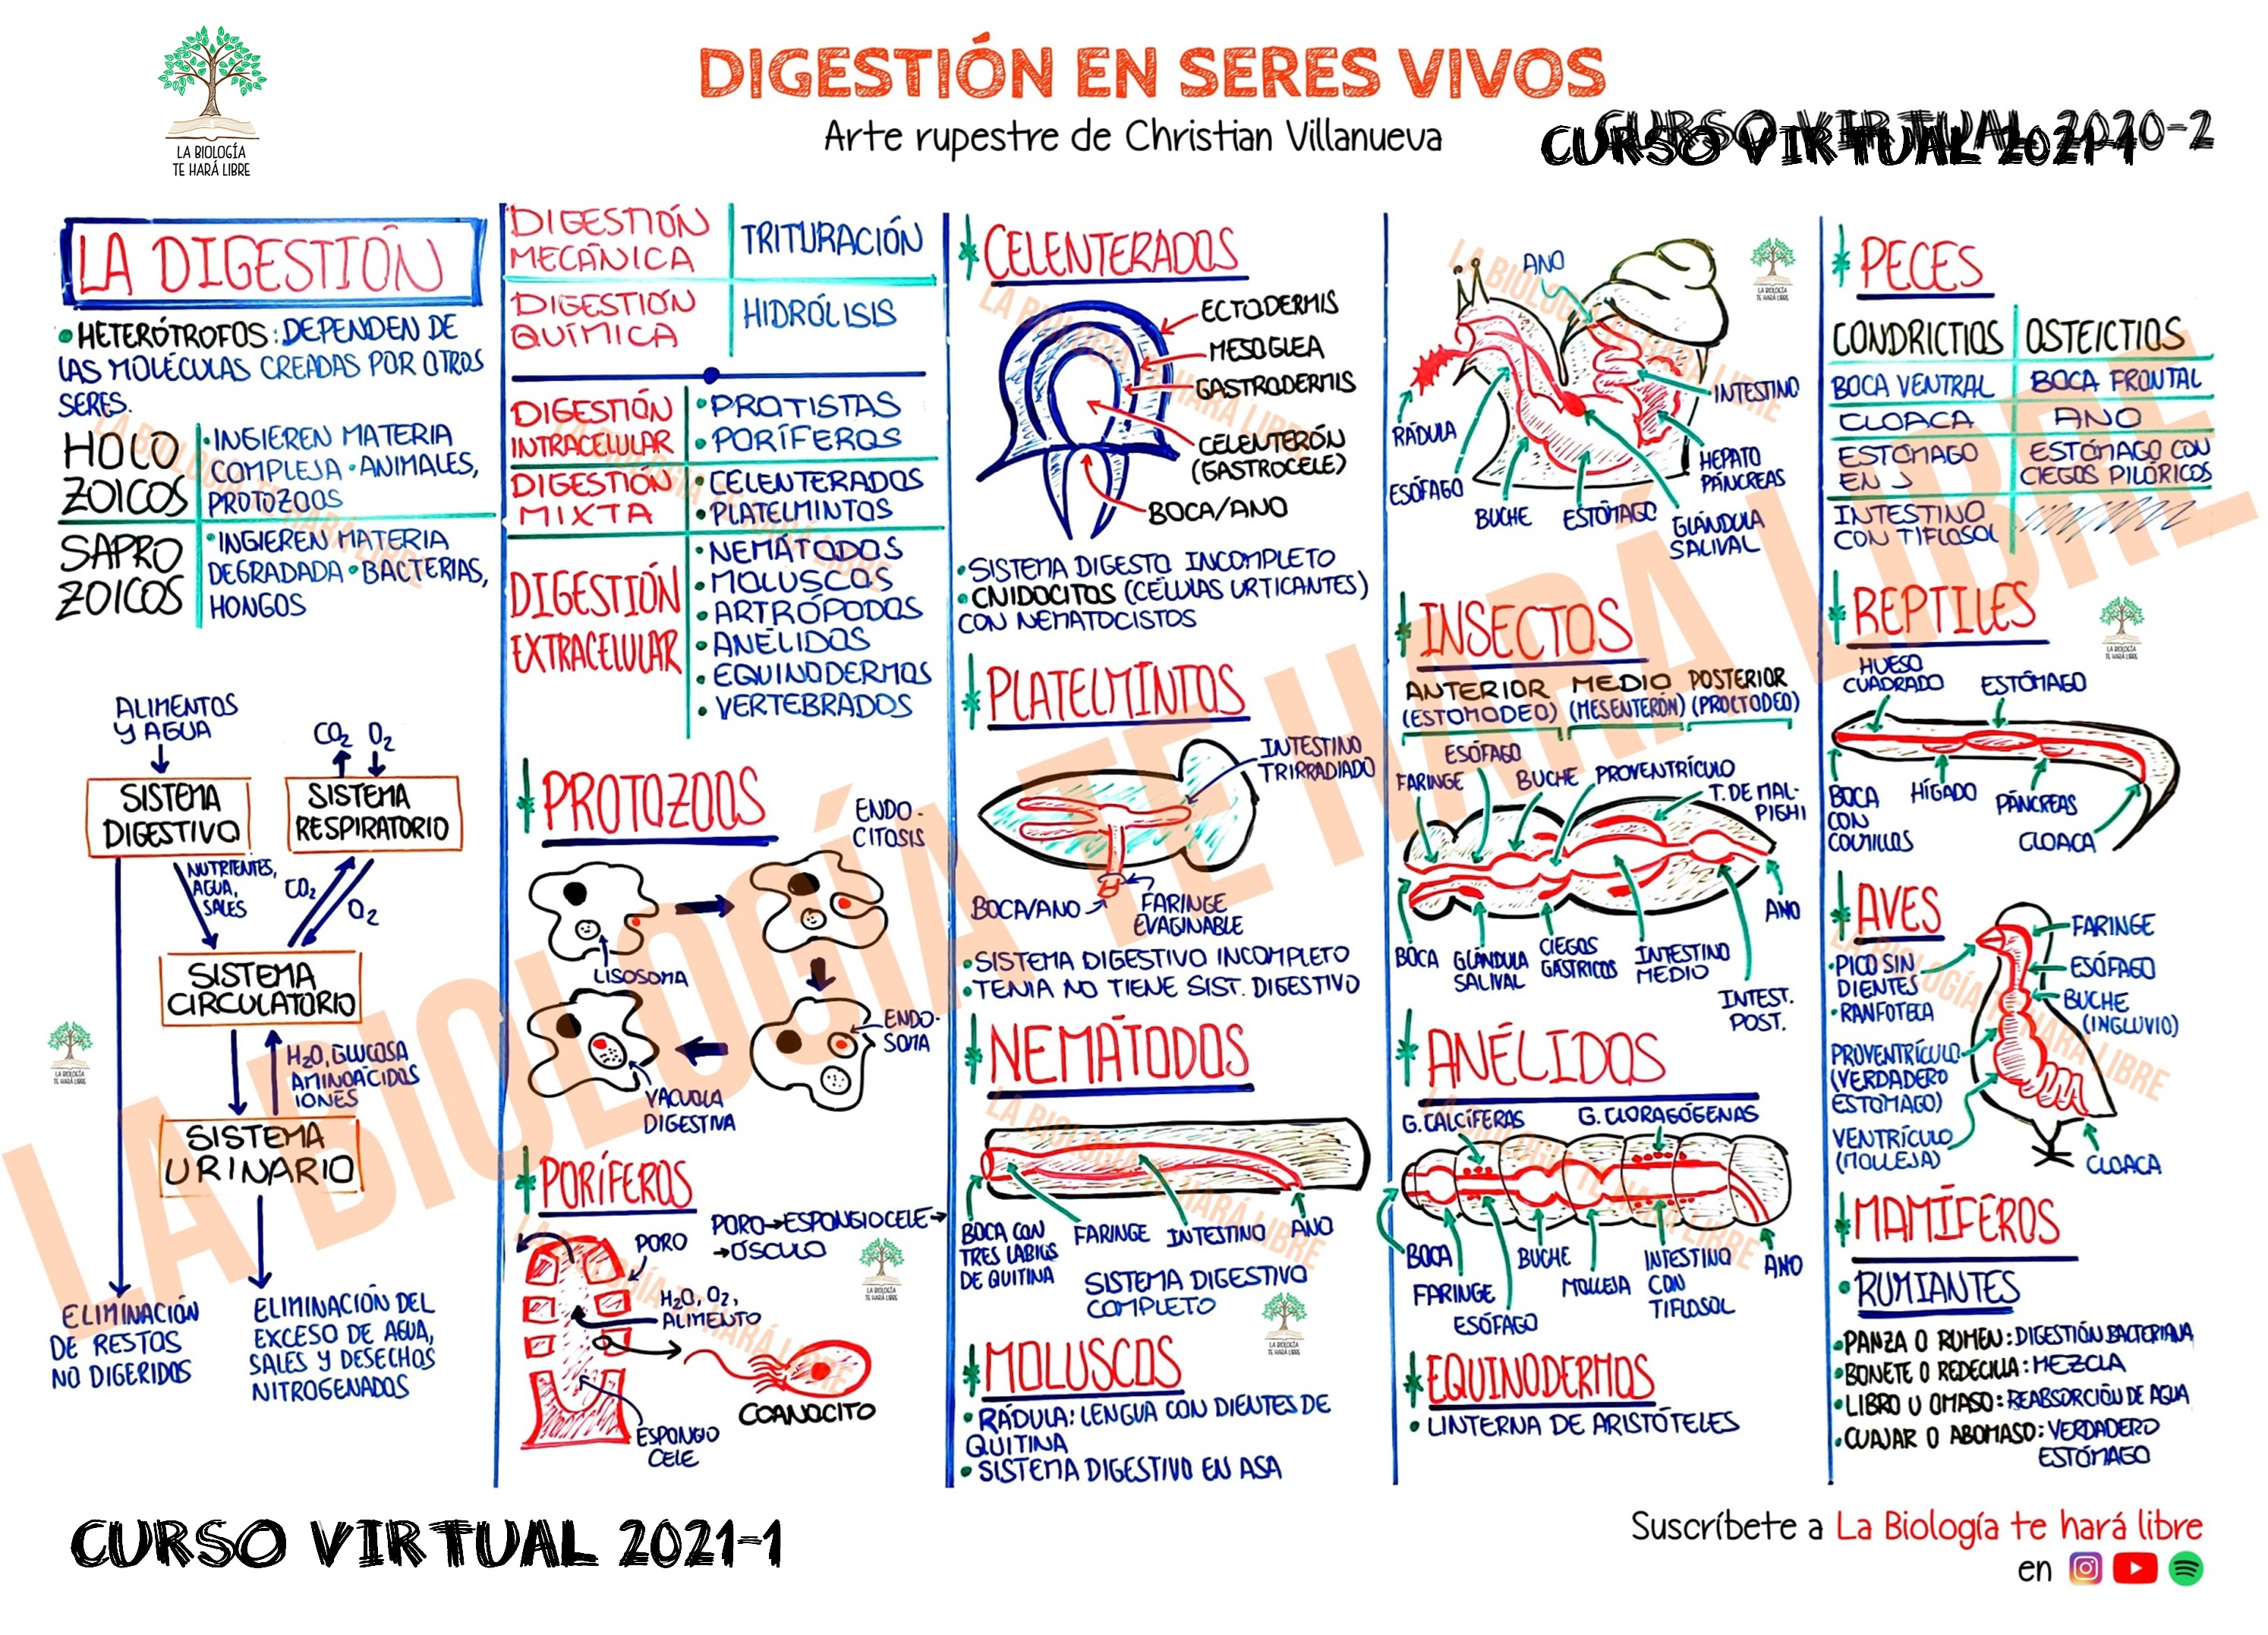 LA BIOLOGÍA
TE HARÁ LIBRE
DIGESTIÓN EN SERES VIVOS
Arte rupestre de Christian Villanueva
CURSO VIRTUAL 2020-2
CURSO VIRTUAL 2021-1
LA DIGESTIÓN
• HETERÓTROFOS: DEPENDEN DE
LAS MOLÉCULAS CREADAS POR OTROS
SERES.
HOLO
ZOICOS
• INGIEREN MATERIA
COMPLEJA • ANIMALES,
PROTOZOOS
SAPRO
ZOICOS
• INGIEREN MATERIA
DEGRADADA • BACTERIAS,
HONGOS
ALIMENTOS
Y AGUA
CO2 O2
SISTEMA
DIGESTIVO
SISTEMA
RESPIRATORIO
NUTRIENTES,
AGUA,
SALES
CO2
O2
SISTEMA
CIRCULATORIO
H2O, GLUCOSA
AMINOÁCIDOS
IONES
SISTEMA
URINARIO
ELIMINACIÓN
DE RESTOS
NO DIGERIDOS
ELIMINACIÓN DEL
EXCESO DE AGUA,
SALES Y DESECHOS
NITROGENADOS
LA BIOLOGÍA
TE HARÁ LIBRE
DIGESTIÓN
MECÁNICA
TRITURACIÓN
DIGESTIÓN
QUÍMICA
HIDRÓLISIS
DIGESTIÓN
INTRACELULAR
• PROTISTAS
• PORÍFEROS
DIGESTIÓN
MIXTA
• CELENTERADOS
• PLATELMINTOS
DIGESTIÓN
EXTRACELULAR
• NEMÁTODOS
• MOLUSCOS
• ARTRÓPODOS
• ANÉLIDOS
• EQUINODERMOS
• VERTEBRADOS
* PROTOZOOS
ENDO-
CITOSIS
LISOSOMA
ENDO-
SOMA
VACUOLA
DIGESTIVA
* PORÍFEROS
PORO→ESPONGIOCELE→
→ÓSCULO
PORO
H2O, O2,
ALIMENTO
COANOCITO
ESPONGIO
CELE
LA BIOLOGÍA
TE HARÁ LIBRE
* CELENTERADOS
ECTODERMIS
MESOGLEA
GASTRODERMIS
CELENTERÓN
(GASTROCELE)
BOCA/ANO
• SISTEMA DIGESTO INCOMPLETO
• CNIDOCITOS (CÉLULAS URTICANTES)
CON NEMATOCISTOS
* PLATELMINTOS
INTESTINO
TRIRRADIADO
BOCA/ANO
FARINGE
EVAGINABLE
• SISTEMA DIGESTIVO INCOMPLETO
• TENIA NO TIENE SIST. DIGESTIVO
* NEMÁTODOS
BOCA CON
TRES LABIOS
DE QUITINA
FARINGE
INTESTINO
ANO
SISTEMA DIGESTIVO
COMPLETO
LA BIOLOGÍA
TE HARÁ LIBRE
* MOLUSCOS
• RÁDULA: LENGUA CON DIENTES DE
QUITINA
• SISTEMA DIGESTIVO EN ASA
ANO
LA BIOLOGÍA
TE HARÁ LIBRE
INTESTINO
RÁDULA
HEPATO
PÁNCREAS
ESÓFAGO
BUCHE
ESTÓMAGO
GLÁNDULA
SALIVAL
* INSECTOS
ANTERIOR MEDIO POSTERIOR
(ESTOMODEO) (MESENTERÓN) (PROCTODEO)
ESÓFAGO
FARINGE
BUCHE
PROVENTRÍCULO
T. DE MAL-
PIGHI
BOCA
GLÁNDULA
SALIVAL
CIEGOS
GÁSTRICOS
INTESTINO
MEDIO
ANO
INTEST.
POST.
* ANÉLIDOS
G. CALCÍFERAS
G. CLORAGÓGENAS
BOCA
FARINGE
ESÓFAGO
BUCHE
MOLLEJA
INTESTINO
CON
TIFLOSOL
ANO
* EQUINODERMOS
• LINTERNA DE ARISTÓTELES
* PECES
CONDRICTIOS OSTEICTIOS
BOCA VENTRAL BOCA FRONTAL
CLOACA ANO
ESTÓMAGO
EN J
ESTÓMAGO CON
CIEGOS PILÓRICOS
INTESTINO
CON TIFLOSOL
* REPTILES
LA BIOLOGÍA
TE HARÁ LIBRE
HUESO
CUADRADO
ESTÓMAGO
BOCA
CON
COLMILLOS
HÍGADO
PÁNCREAS
CLOACA
* AVES
FARINGE
• PICO SIN
DIENTES
• RANFOTECA
ESÓFAGO
BUCHE
(INGLUVIO)
PROVENTRÍCULO
(VERDADERO
ESTÓMAGO)
VENTRÍCULO
(MOLLEJA)
CLOACA
* MAMÍFEROS
• RUMIANTES
• PANZA O RUMEN: DIGESTIÓN BACTERIANA
• BONETE O REDECILLA: MEZCLA
• LIBRO U OMASO: REABSORCIÓN DE AGUA
• CUAJAR O ABOMASO: VERDADERO
ESTÓMAGO
LA BIOLOGÍA TE HARÁ LIBRE
CURSO VIRTUAL 2021-1
Suscríbete a La Biología te hará libre
en